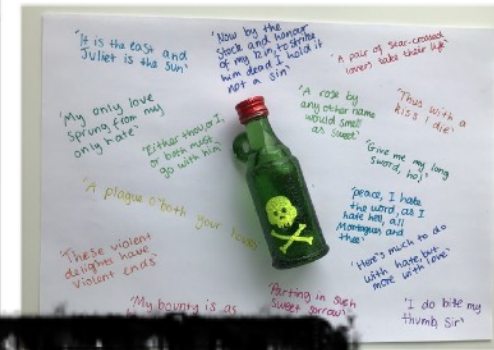 'It is the east and
Juliet is the sun'
'Now by the
stock and honour
of my kin, to strike
him dead I hold it
not a sin'
'A pair of star-crossed
lovers take their life'
'My only love
sprung from my
only hate'
'Either thou, or I,
or both must
go with him'
'A rose by
any other name
would smell
as sweet'
'Thus with a
kiss I die'
'Give me my long
sword, ho!'
'A plague o'both your houses'
'peace, I hate
the word, as I
hate hell, all
Montagues and
thee'
'These violent
delights have
violent ends'
'Here's much to do
with hate, but
more with love'
'My bounty is as
'Parting is such
sweet sorrow'
'I do bite my
thumb, sir'